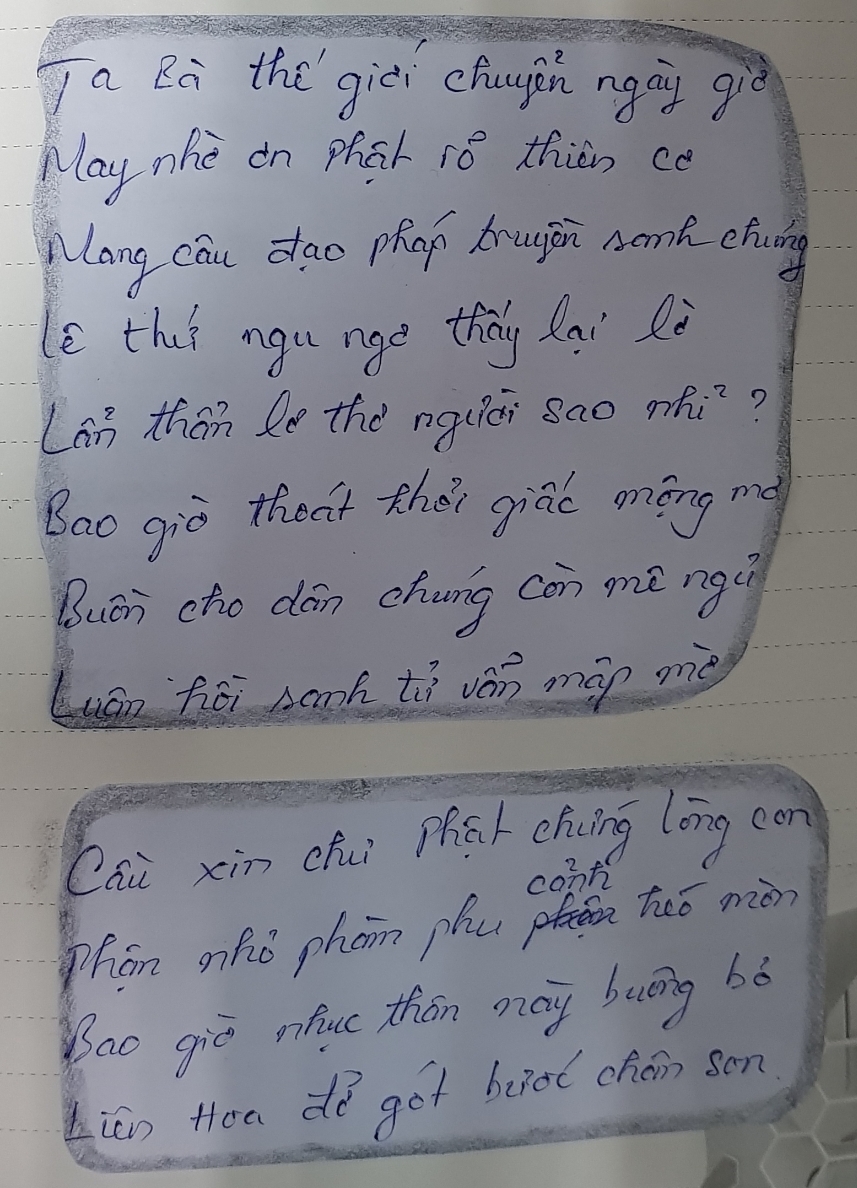 Ta Bà thế giới chuyển ngày giờ
May nhờ ơn Phật rõ thiên cơ
Mang câu đạo pháp truyền sanh chúng
Lê thứ ngu ngơ thấy lại lờ
Lẩn thẩn lơ thơ người sao nhỉ?
Bao giờ thoát khỏi giấc mộng mơ
Buồn cho dân chúng còn mê ngủ
Luân hồi sanh tử vẫn mập mờ
Cầu xin chư Phật chứng lòng con
Phận nhỏ phàm phu cảnh héo mòn
Bao giờ nhục thân này buông bỏ
Liên Hoa đỡ gót bước chân son.